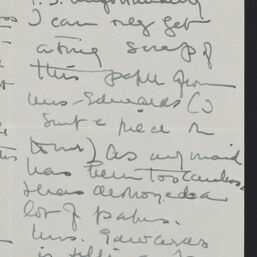 I can only get
a tiny scrap of
this paper from
Mrs. Edwards (I
sent a piece in
) as my maid
has been too careless
& has destroyed a
lot of papers.
Mrs. Edwards
is